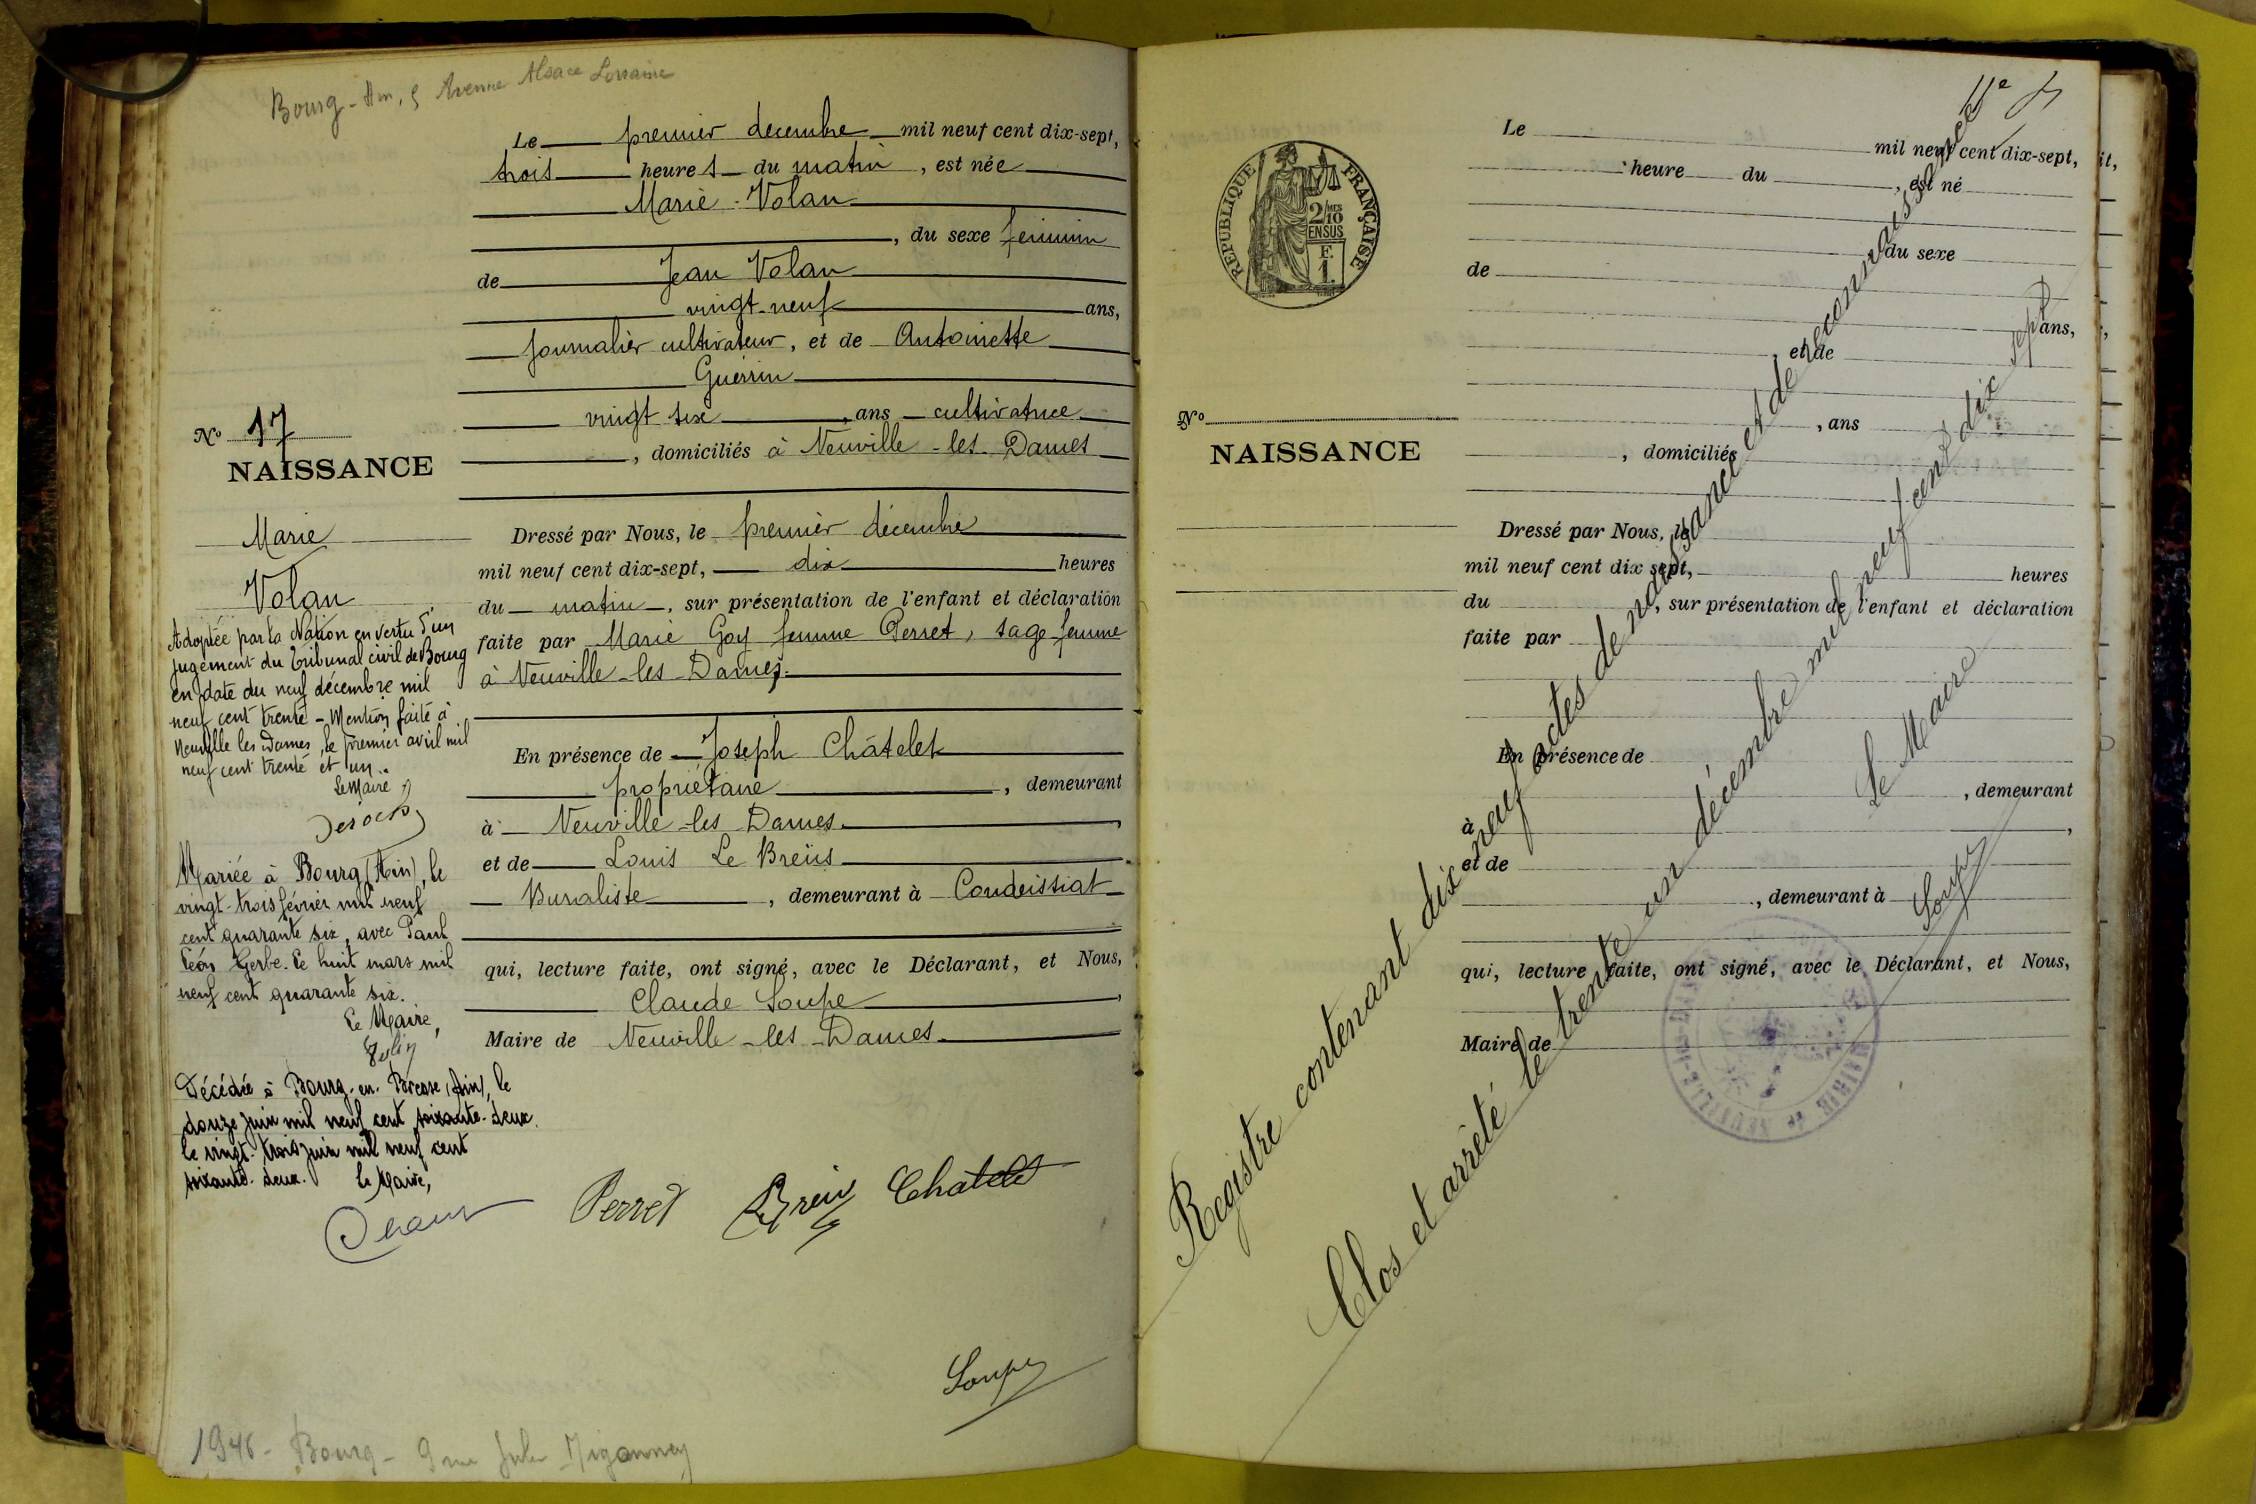 Bourg - Ain, 5 Avenue Alsace Lorraine
Le premier décembre mil neuf cent dix-sept,
trois heures du matin, est née
Marie Volan
, du sexe féminin
de Jean Volan
vingt-neuf ans,
journalier cultivateur, et de Antoinette
Guérin
vingt six, ans cultivatrice
, domiciliés à Neuville-les-Dames
Dressé par Nous, le premier décembre
mil neuf cent dix-sept, dix heures
du matin, sur présentation de l'enfant et déclaration
faite par Marie Goy femme Perret, sage femme
à Neuville-les-Dames.
En présence de Joseph Châtelet
propriétaire, demeurant
à Neuville-les-Dames,
et de Louis Le Breüs
Buraliste, demeurant à Condeissiat
qui, lecture faite, ont signé, avec le Déclarant, et Nous,
Claude Soupe,
Maire de Neuville-les-Dames.
Perret Le Breüs Chatelet
Soupe
No 17
NAISSANCE
Marie
Volan
Adoptée par la Nation en vertu d'un
jugement du Tribunal civil de Bourg
en date du neuf décembre mil
neuf cent trente - Mention faite à
Neuville les Dames, le premier avril mil
neuf cent trente et un.
Le Maire
Mariée à Bourg (Ain), le
vingt-trois février mil neuf
cent quarante six, avec Paul
Léon Gerbe. Le huit mars mil
neuf cent quarante six.
Le Maire,
Décédée à Bourg-en-Bresse (Ain), le
douze juin mil neuf cent soixante-deux.
le vingt-trois juin mil neuf cent
soixante-deux. Le Maire,
1946 - Bourg - 9 rue Jules Migonney
RÉPUBLIQUE FRANÇAISE
2/10MES
EN SUS
F.
1.
No
NAISSANCE
Le mil neuf cent dix-sept,
heure du, est né
du sexe
de
ans,
, et de
, ans
, domiciliés
Dressé par Nous, le
mil neuf cent dix sept, heures
du, sur présentation de l'enfant et déclaration
faite par
En présence de
, demeurant
à,
et de
, demeurant à
qui, lecture faite, ont signé, avec le Déclarant, et Nous,
Maire de
Registre contenant dix neuf actes de naissance et de reconnaissance
Clos et arrêté le trente un décembre mil neuf cent dix sept
Le Maire
Soupe
MAIRIE de NEUVILLE-les-DAMES